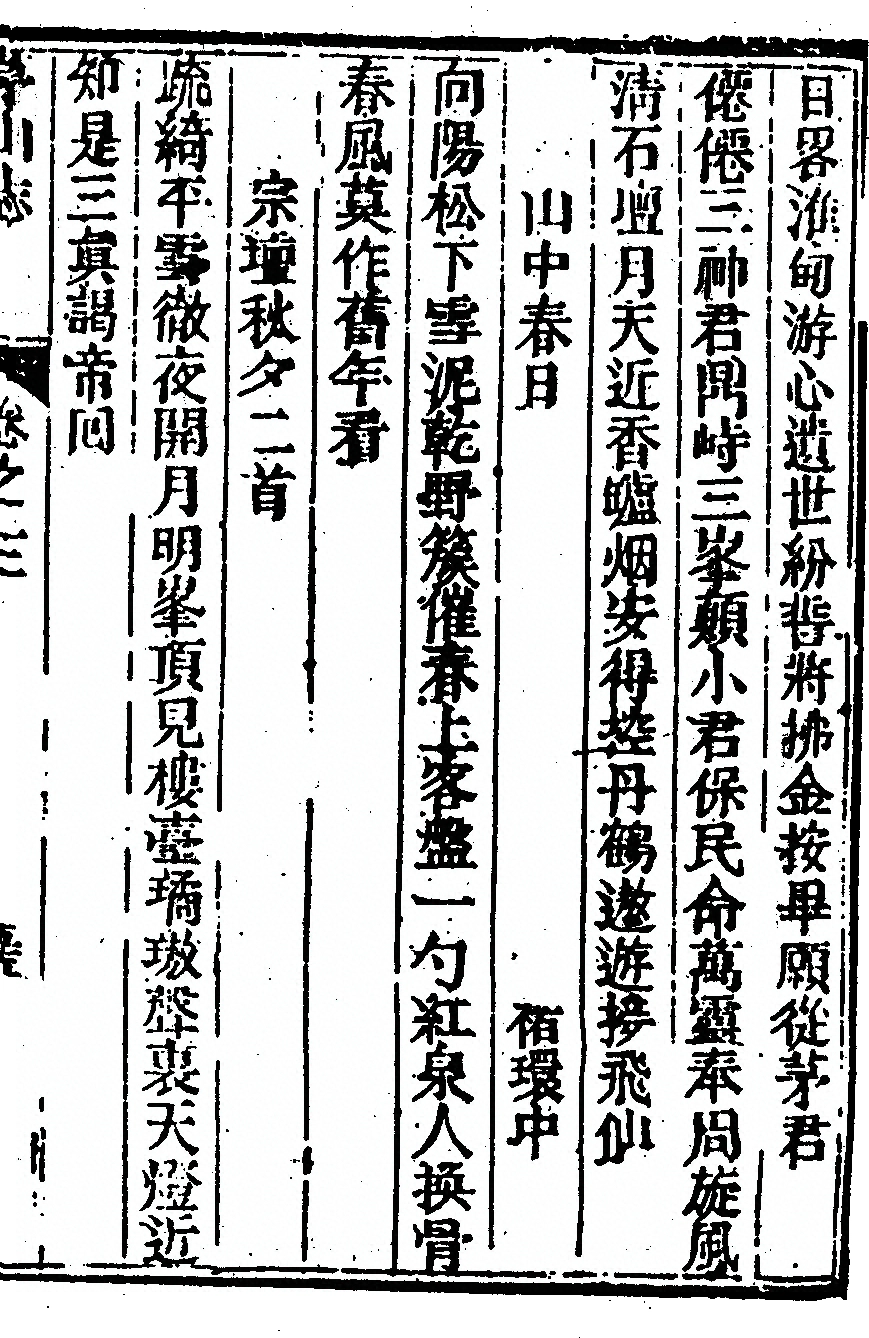 日畧淮甸游心遺世紛昔將拂金按畢願從茅君
僊僊三神君閒峙三峯顛小君保民命萬靈奉周旋風
淸石壇月天近香爐烟安得控丹鶴遨遊接飛仙
山中春日　褚環中
向陽松下雪泥乾野簇催春上客盤一勺紅泉人换骨
春風莫作舊年看
宗壇秋夕二首
疏綺平雲微夜開月明峯頂見樓臺璚璈聲裏天燈近
知是三眞謁帝囘
茅山志　卷之三